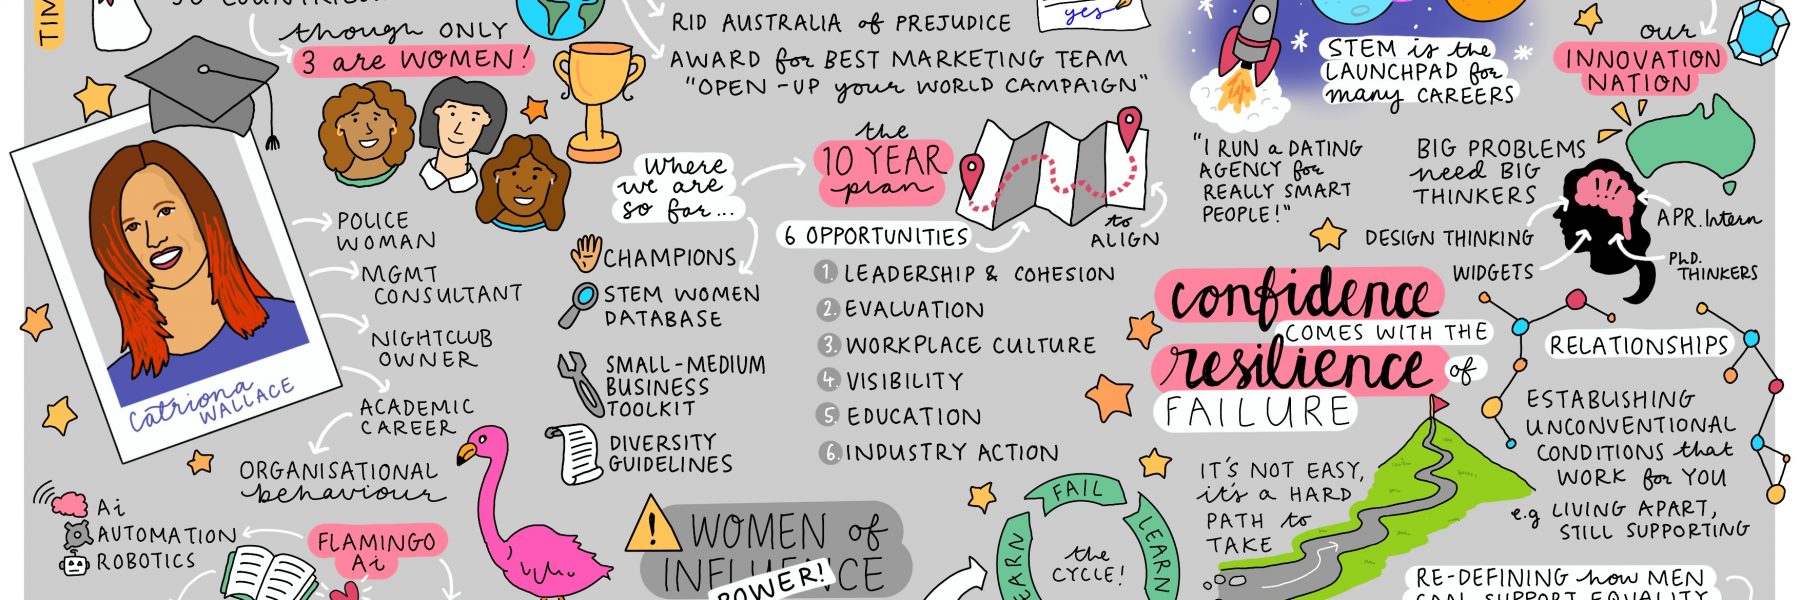 TIM
though ONLY
3 are WOMEN!
Catriona
WALLACE
POLICE
WOMAN
MGMT
CONSULTANT
NIGHTCLUB
OWNER
ACADEMIC
CAREER
ORGANISATIONAL
behaviour
Ai
AUTOMATION
ROBOTICS
FLAMINGO
Ai
RID AUSTRALIA of PREJUDICE
AWARD for BEST MARKETING TEAM
"OPEN-UP your WORLD CAMPAIGN"
yes
Where
we are
so far...
CHAMPIONS
STEM WOMEN
DATABASE
SMALL-MEDIUM
BUSINESS
TOOLKIT
DIVERSITY
GUIDELINES
the
10 YEAR
plan
to
ALIGN
6 OPPORTUNITIES
1. LEADERSHIP & COHESION
2. EVALUATION
3. WORKPLACE CULTURE
4. VISIBILITY
5. EDUCATION
6. INDUSTRY ACTION
! WOMEN of
INFLUENCE
POWER!
FAIL
LEARN
EARN
the
CYCLE!
STEM is the
LAUNCHPAD for
many CAREERS
"I RUN a DATING
AGENCY for
REALLY SMART
PEOPLE!"
our
INNOVATION
NATION
BIG PROBLEMS
need BIG
THINKERS
DESIGN THINKING
WIDGETS
APR. Intern
Ph.D.
THINKERS
confidence
COMES WITH THE
resilience of
FAILURE
IT'S NOT EASY,
it's a HARD
PATH to
TAKE
RELATIONSHIPS
ESTABLISHING
UNCONVENTIONAL
CONDITIONS that
WORK for YOU
e.g LIVING APART,
STILL SUPPORTING
RE-DEFINING how MEN
SUPPORT EQUALITY